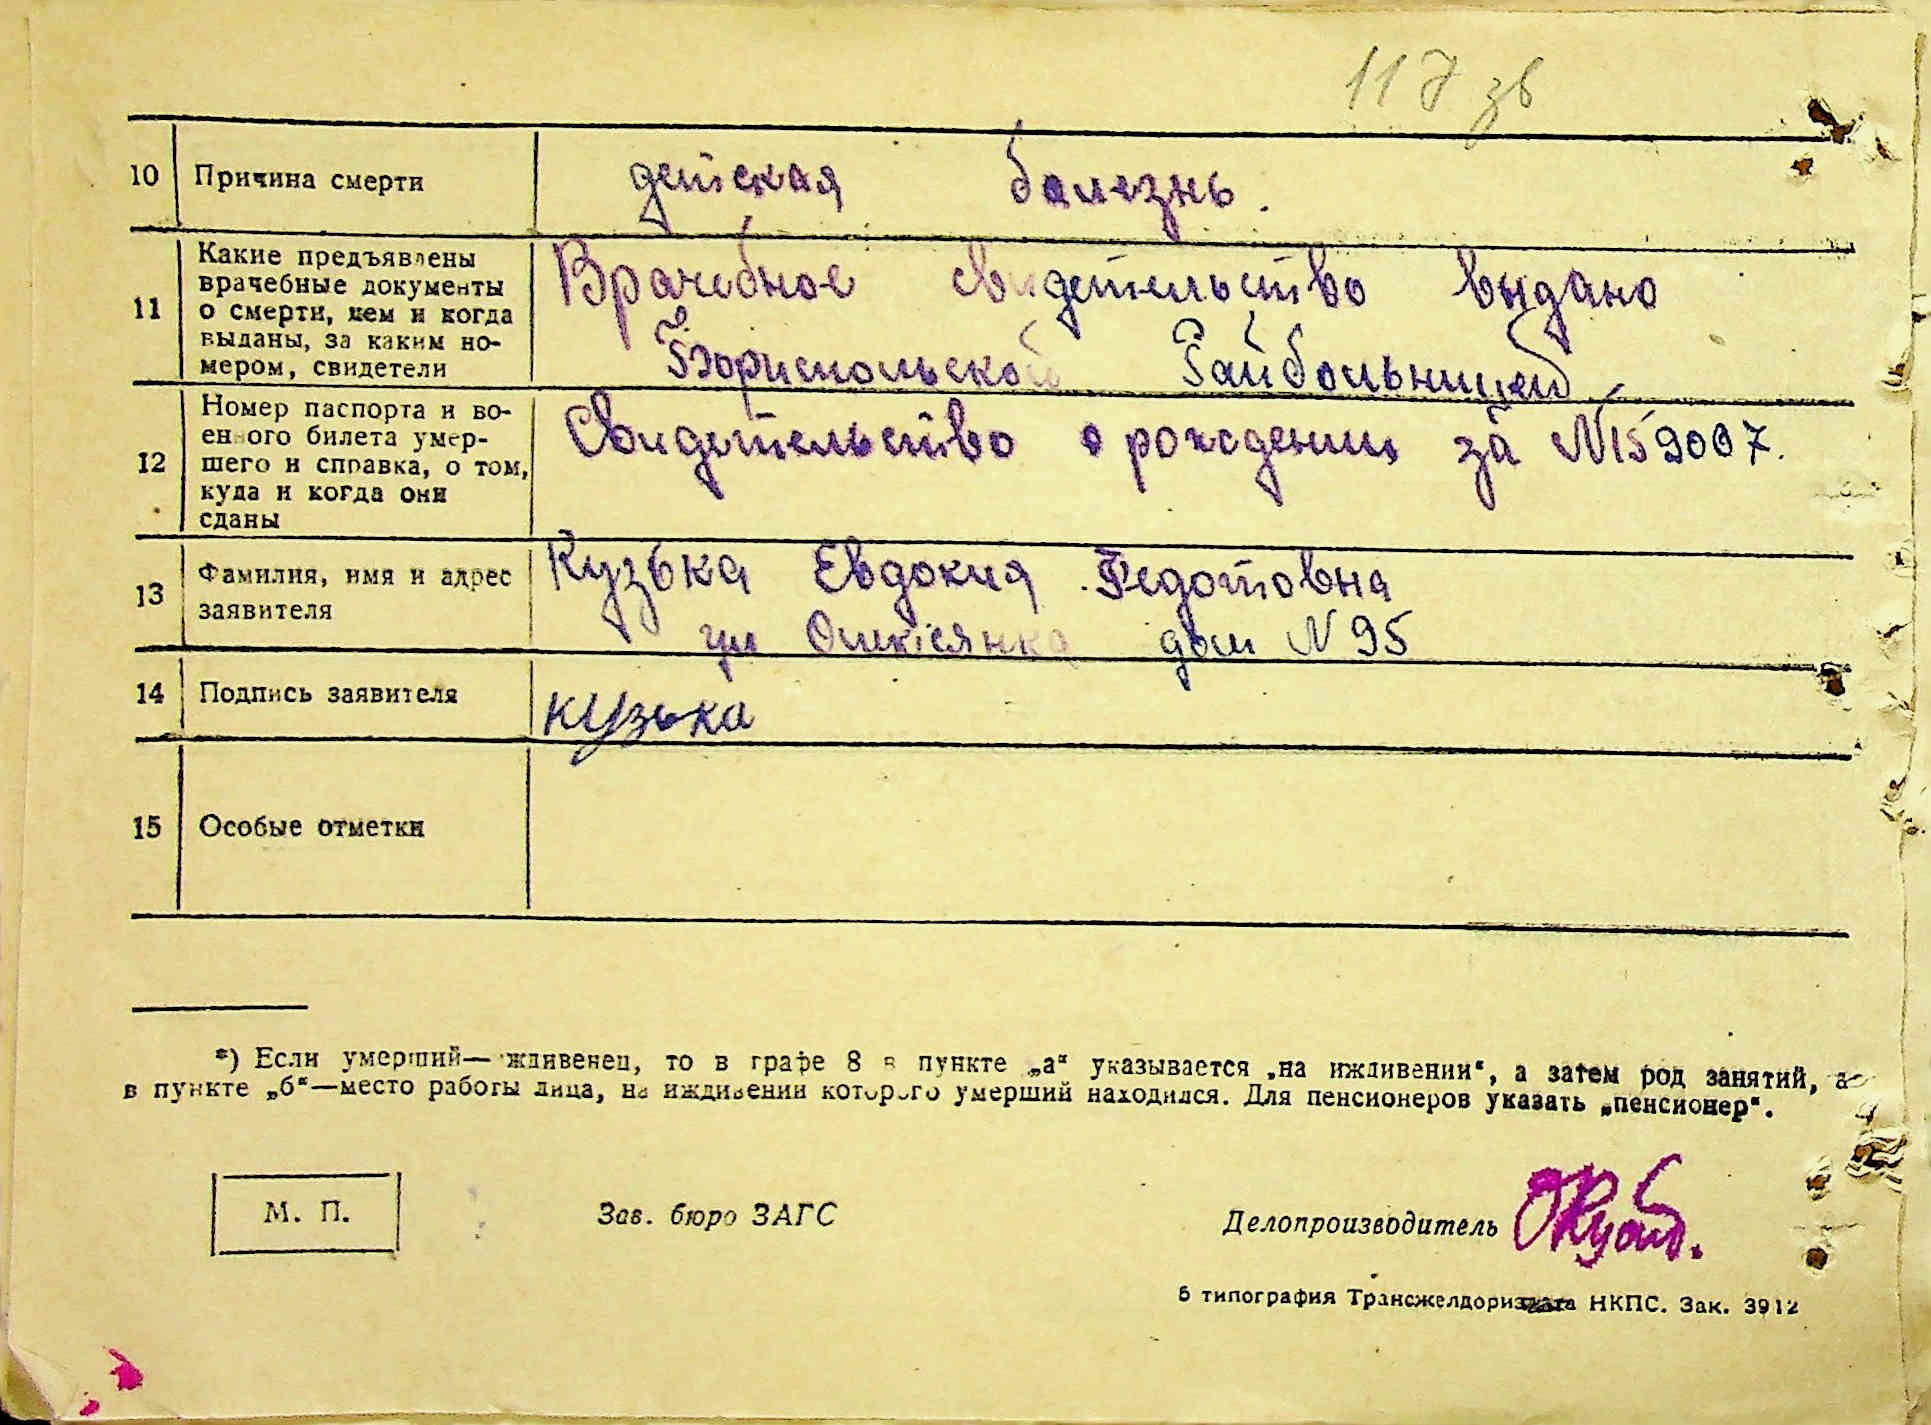 117 зв
10 Причина смерти детская болезнь.
11 Какие предъявлены
врачебные документы
о смерти, кем и когда
выданы, за каким но-
мером, свидетели
Врачебное свидетельство выдано
Бориспольской Райбольницей
12 Номер паспорта и во-
енного билета умер-
шего и справка, о том,
куда и когда они
сданы
Свидетельство о рождении за №159007.
13 Фамилия, имя и адрес
заявителя
Кузька Евдокия Федотовна
ул дом N 95
14 Подпись заявителя кузька
15 Особые отметки
*) Если умерший— ждивенец, то в графе 8 в пункте „а“ указывается „на иждивении“, а затем род занятий, а
в пункте „б“—место работы лица, на иждивении которого умерший находился. Для пенсионеров указать „пенсионер“.
М. П.
Зав. бюро ЗАГС
Делопроизводитель
6 типография Трансжелдориздата НКПС. Зак. 3912